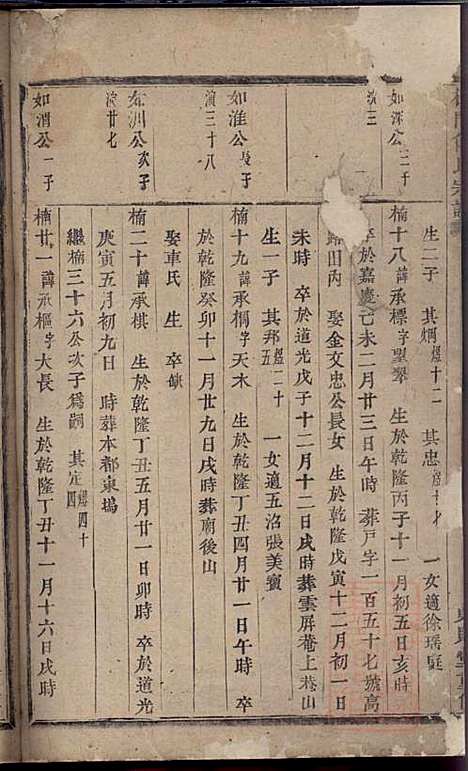 生二子 其炯煜十二 其忠煜十才 一女適徐瑶庭
如深公二子
演三
楠十八諱承標字聖翠 生於乾隆丙子十一月初五日亥時
卒於嘉慶己未二月廿三日午時 葬戶字一百五十七號高
歸田丙 娶金文忠公長女 生於乾隆戊寅十二月初一日
未時 卒於道光戊子十二月十二日戌時葬雲屏菴上巷山
生一子 其邦煜二十五 一女適五洺張美寶
如淮公長子
演三十八
楠十九諱承棡字天木 生於乾隆丁丑四月廿一日午時 卒
於乾隆癸卯十一月廿九日戌時葬廟後山
娶車氏 生 卒缺
如泗公次子
演廿七
楠二十諱承棋 生於乾隆丁丑五月廿一日卯時 卒於道光
庚寅五月初九日 時葬本都東塢
繼楠三十六公次子爲嗣 其定煜四十四
如渭公一子
楠廿一諱承樞字大長 生於乾隆丁丑十一月十六日戌時